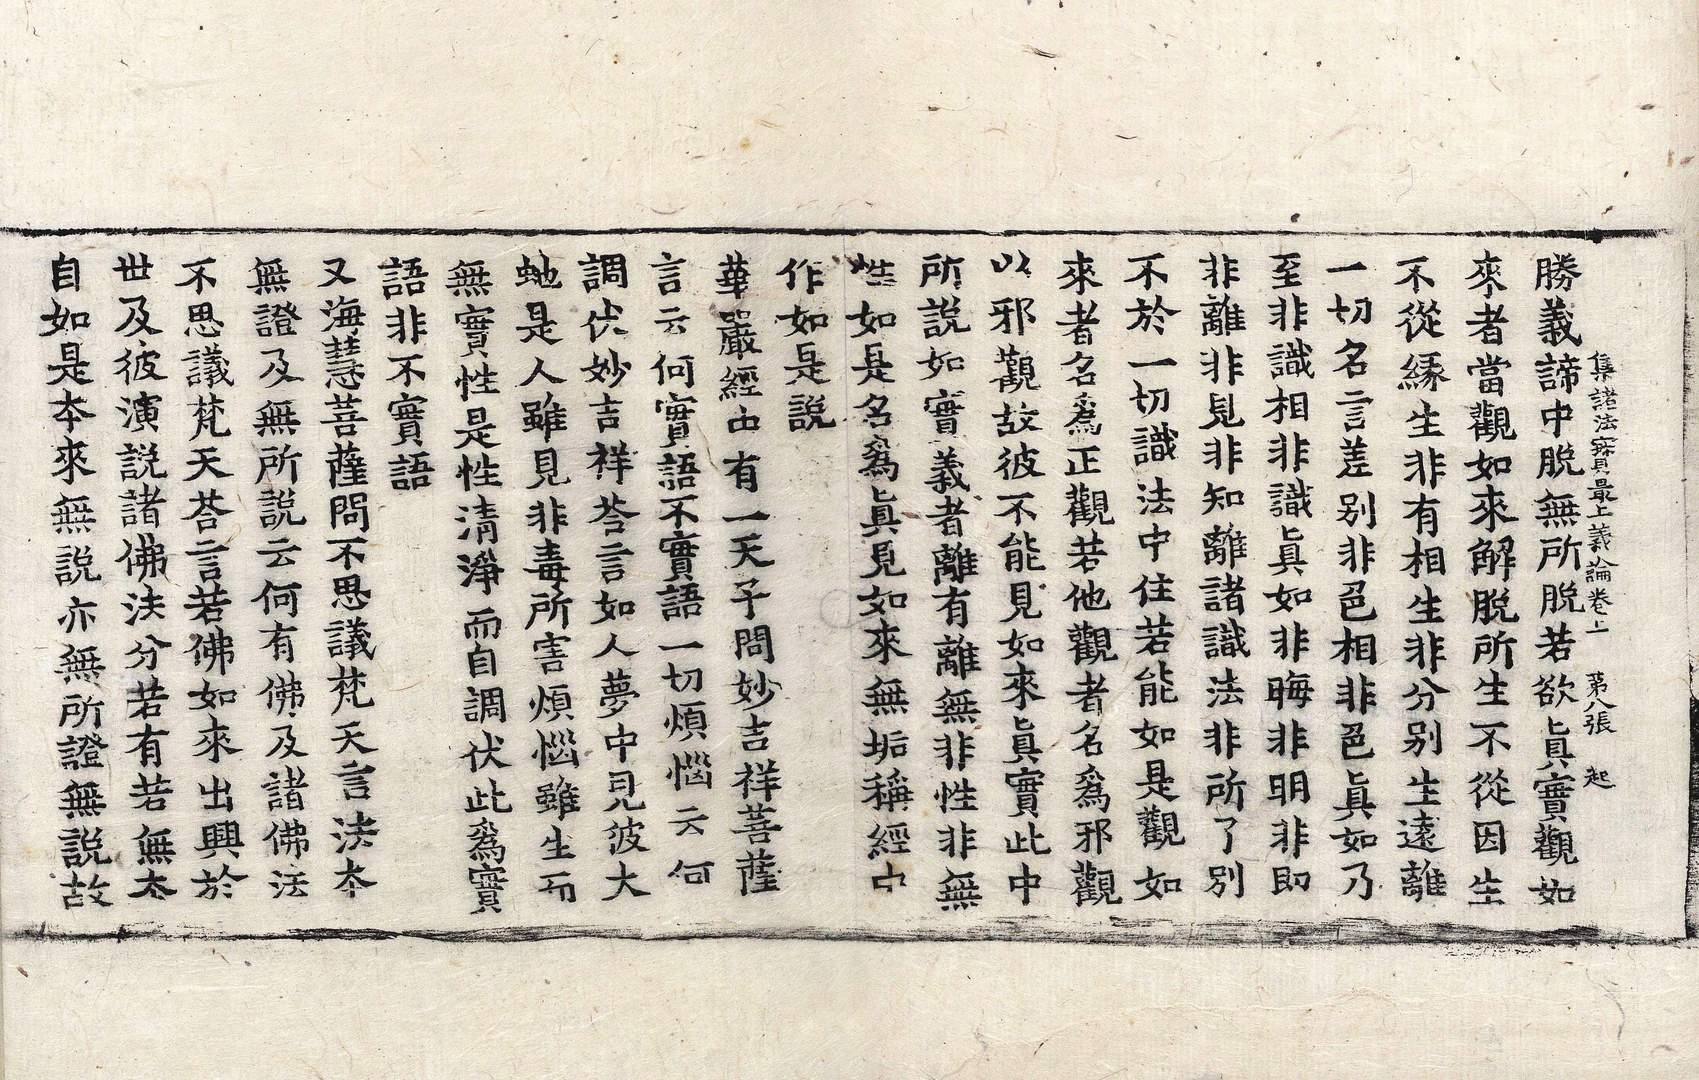 集諸法寳最上義論卷上 第八張 起
勝義諦中脫無所脫若欲眞實觀如
來者當觀如來解脫所生不從因生
不從緣生非有相生非分別生遠離
一切名言差別非色相非色眞如乃
至非識相非識眞如非晦非明非即
非離非見非知離諸識法非所了別
不於一切識法中住若能如是觀如
來者名爲正觀若他觀者名爲邪觀
以邪觀故彼不能見如來眞實此中
所說如實義者離有離無非性非無
性如是名爲眞見如來無垢稱經中
作如是說
華嚴經中有一天子問妙吉祥菩薩
言云何實語不實語一切煩惱云何
調伏妙吉祥荅言如人夢中見彼大
虵是人雖見非毒所害煩惱雖生而
無實性是性清淨而自調伏此爲實
語非不實語
又海慧菩薩問不思議梵天言法本
無證及無所說云何有佛及諸佛法
不思議梵天荅言若佛如來出興於
世及彼演說諸佛法分若有若無本
自如是本來無說亦無所證無說故